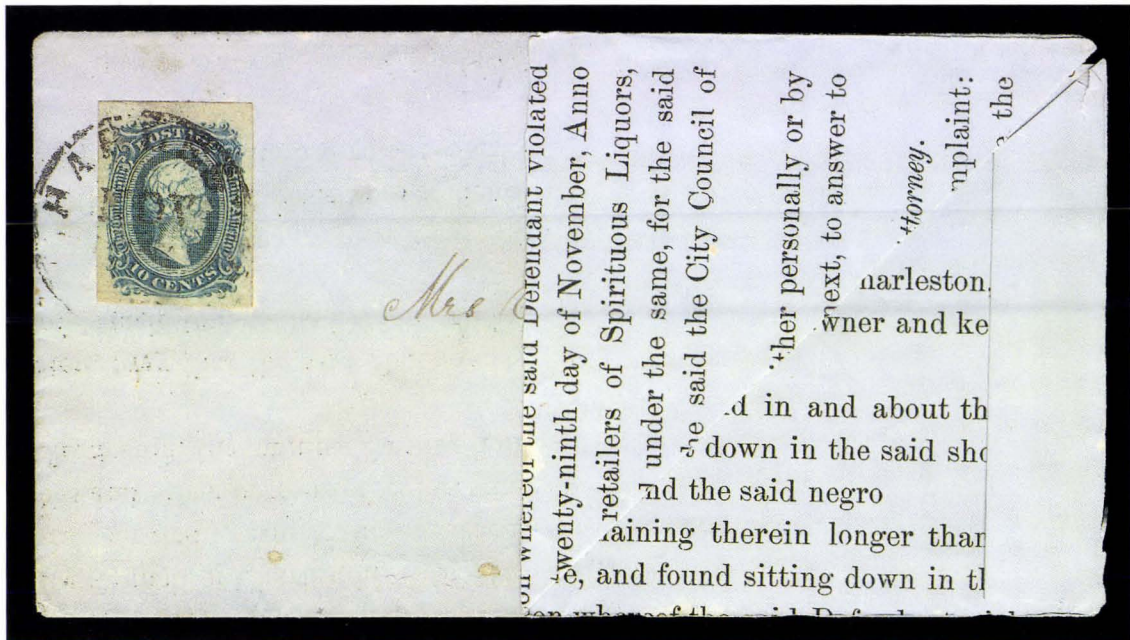 HAR
POSTAGE
TEN CENTS
Mrs
on whereof the said Defendant violated
wenty-ninth day of November, Anno
retailers of Spirituous Liquors,
under the same, for the said
he said the City Council of
ther personally or by
next, to answer to
ttorney.
mplaint:
the
harleston.
wner and ke
d in and about th
down in the said sho
nd the said negro
aining therein longer than
e, and found sitting down in tl
en whereof the said Defendant